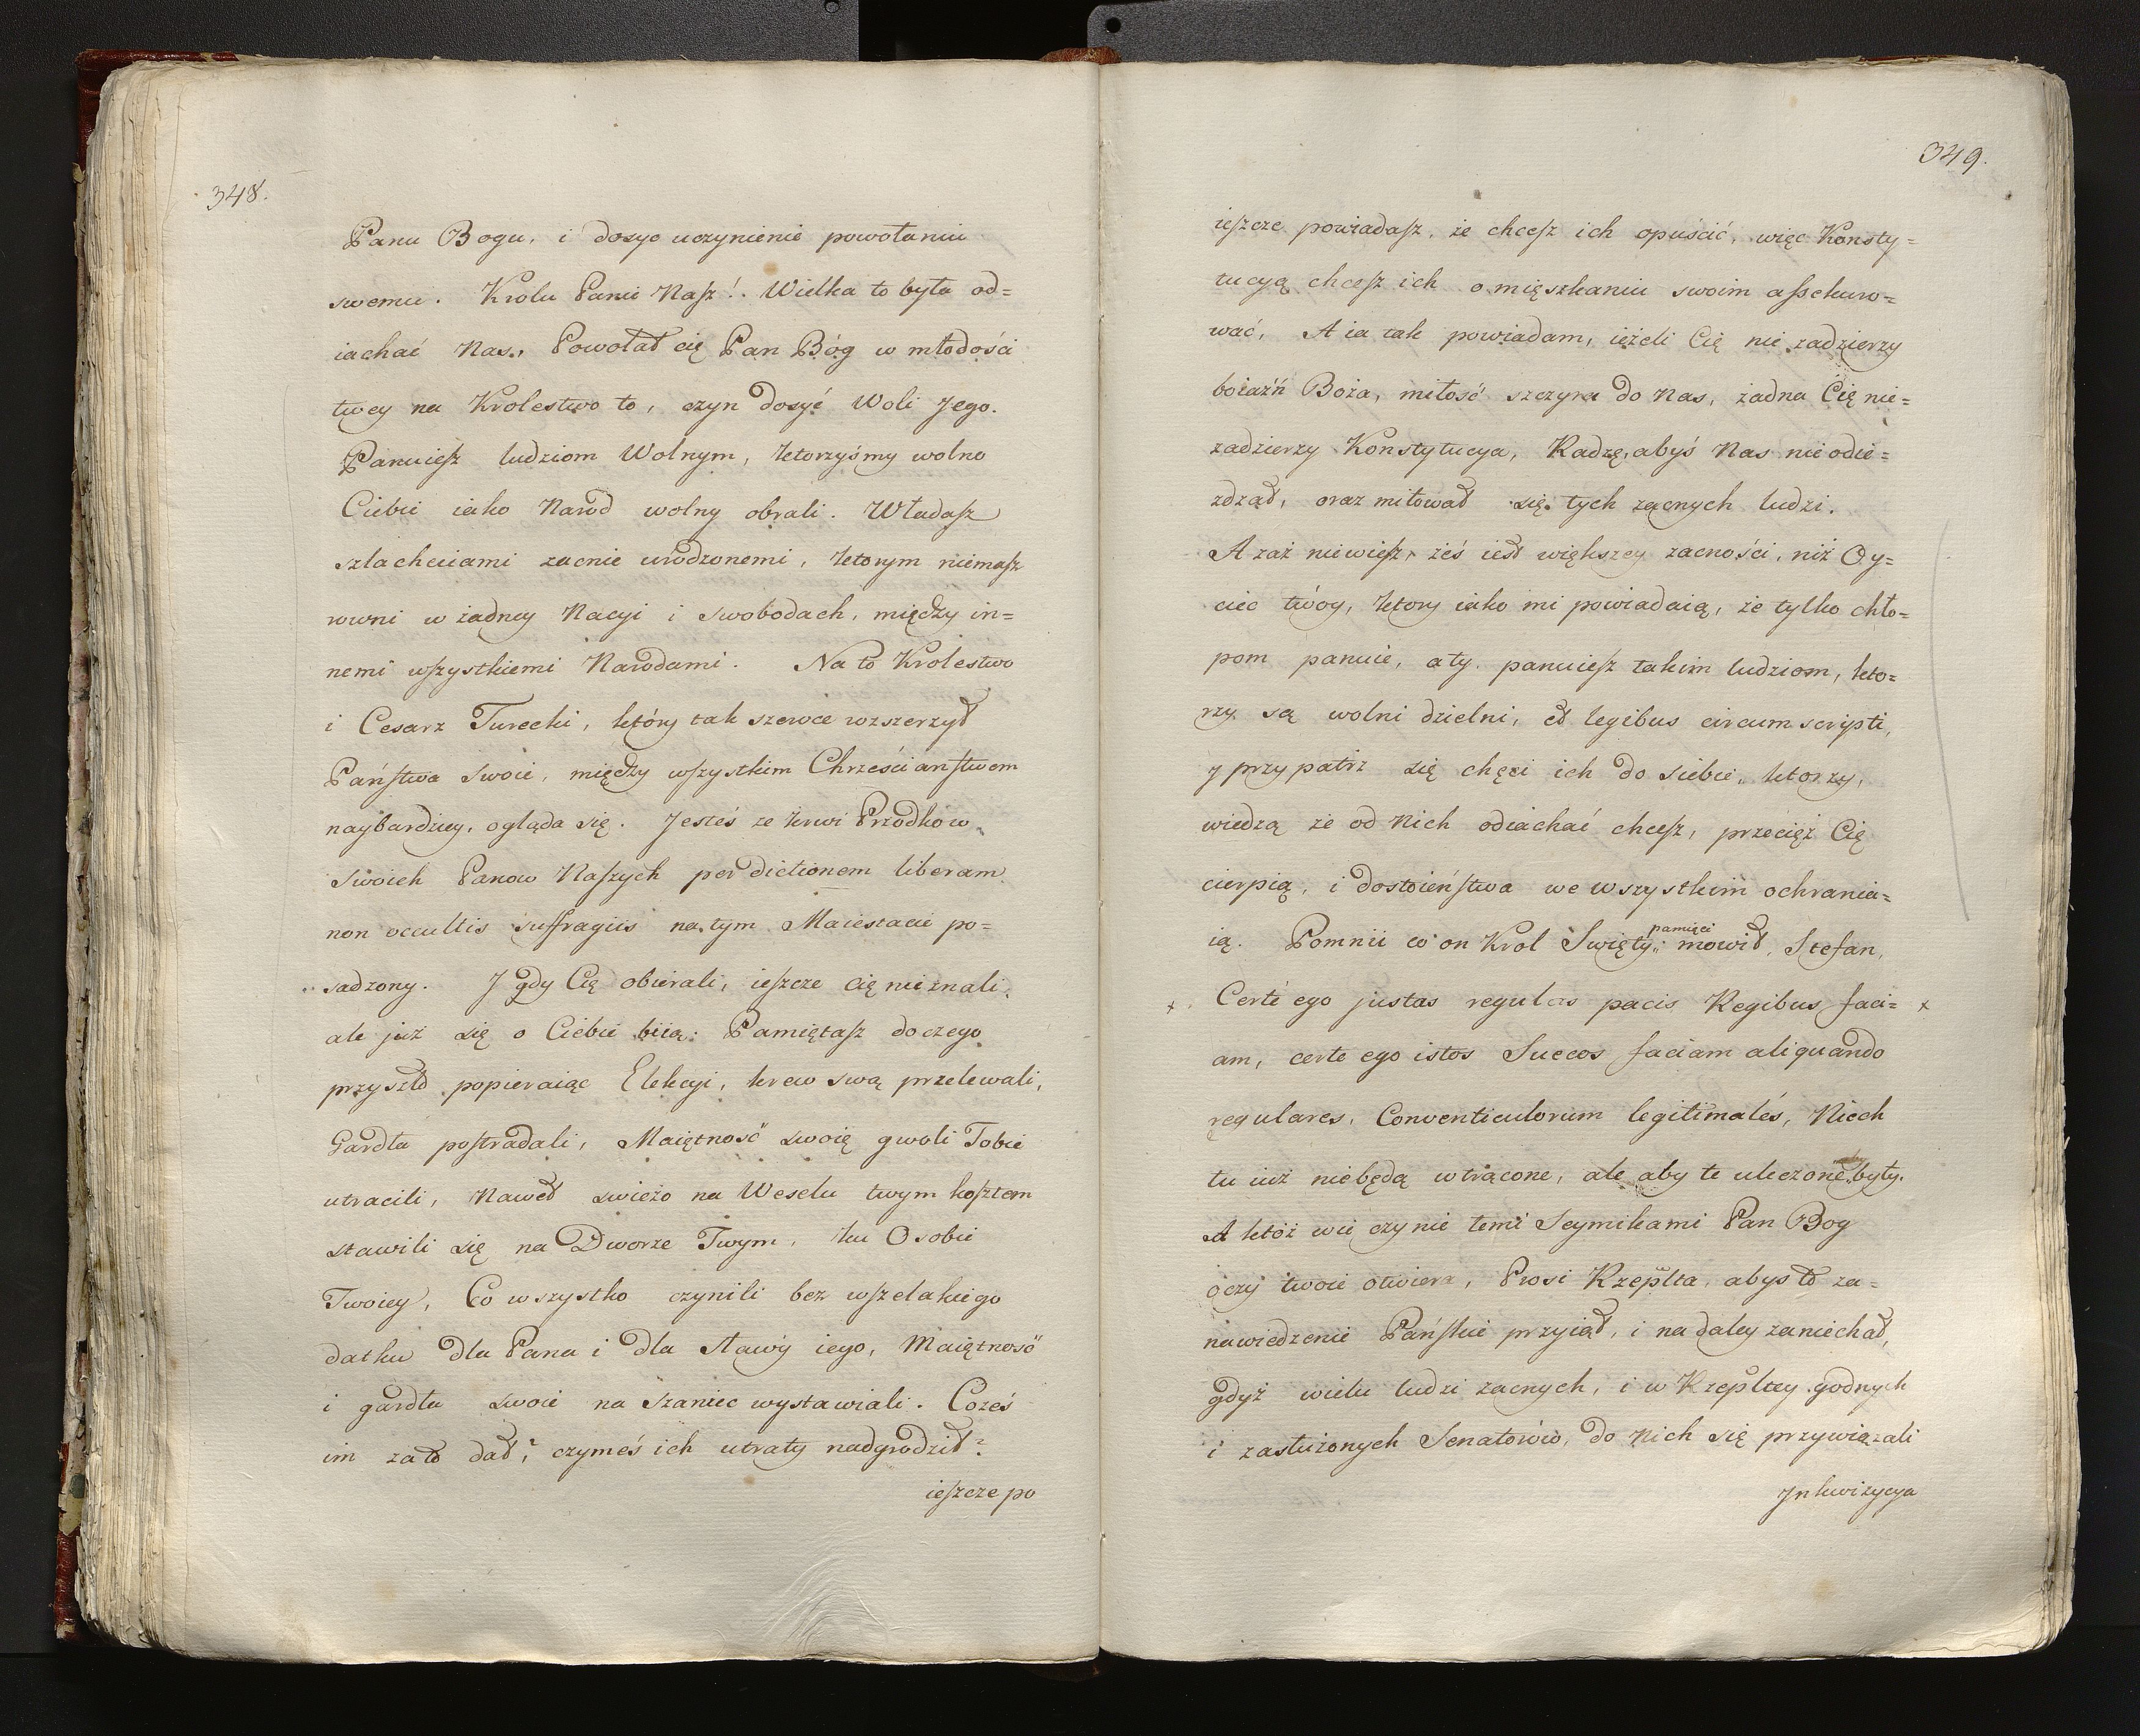 348.
Panu Bogu, i dosyc uczynienie powołaniu
swemu. Krolu Panie Nasz! Wielka to była od=
iachać Nas, Powołał cię Pan Bóg w młodości
twey na Krolestwo to, czyn dosyć Woli Jego.
Panuiesz ludziom Wolnym, ktorzyśmy wolno
Ciebie iako Narod wolny obrali. Władasz
szlachciami zacnie urodzonemi, ktorym niemasz
rowni w żadney Nacyi i swobodach, między in=
nemi wszystkiemi Narodami. Na to Krolestwo
i Cesarz Turecki, który tak szeroce rozszerzył
Państwa swoie, między wszystkim Chrześcianstwem
naybardziey, ogląda się. Jesteś ze krwi Przodkow
Swoich Panow Naszych per dictionem liberam
non occultis suffragiis na tym Maiestacie po=
sadzony. J gdy Cię obierali, ieszcze cię nie znali,
ale już się o Ciebie biią: Pamiętasz do czego
przyszło popieraiąc Elekcyi, krew swą przelewali,
Gardła postradali, Maiętność swoię gwoli Tobie
utracili, Nawet swieżo na Weselu twym kosztem
stawili się na Dworze Twym, ku Osobie
Twoiey, Co wszystko czynili bez wszelakiego
datku dla Pana i dla sławy iego, Maiętność
i gardła swoie na szaniec wystawiali. Coześ
im za to dał, czymeś ich utraty nadgrodził?
ieszcze po
349.
ieszcze powiadasz, że chcesz ich opuścić, więc Konsty=
tucyą chcesz ich o mięszkaniu swoim assekuro=
wać, A ia tak powiadam, ieżeli Cię nie zadzierzy
boiaźń Boża, miłość szczyra do Nas, żadna Cię nie=
zadzierzy Konstytucya, Radzę, abyś Nas nie odie=
zdzał, oraz miłował się tych zacnych ludzi.
A zaż niewiesz, żeś iest większey zacności, niż Oy=
ciec twóy, ktory iako mi powiadaią, że tylko chło=
pom panuie, a ty panuiesz takim ludziom, kto=
rzy są wolni dzielni, et legibus circumscripti,
y przypatrz się chęci ich do siebie, ktorzy,
wiedzą że od Nich odiachać chcesz, przecięż Cię
cierpią, i dostoieństwa we wszystkim ochrania=
ią. Pomnii co on Krol Swięty pamięci mowił, Stefan,
x Certé ego justas regulas pacis Regibus faci= x
am, certe ego istos Suecos faciam aliquando
regulares, Conventiculorum legitimales, Niech
tu iuż nie będą wtrącone, ale aby te uleczone były.
A ktoż wie czy nie temi Seymikami Pan Bog
oczy twoie otwiera, Prosi Rzeplta, abys to za=
nawiedzenie Pańskie przyiął, i na daley zaniechał,
gdyż wielu ludzi zacnych, i w Rzepltey godnych
i zasłużonych Senatorów, do Nich się przywiązali
Jnkwizycya